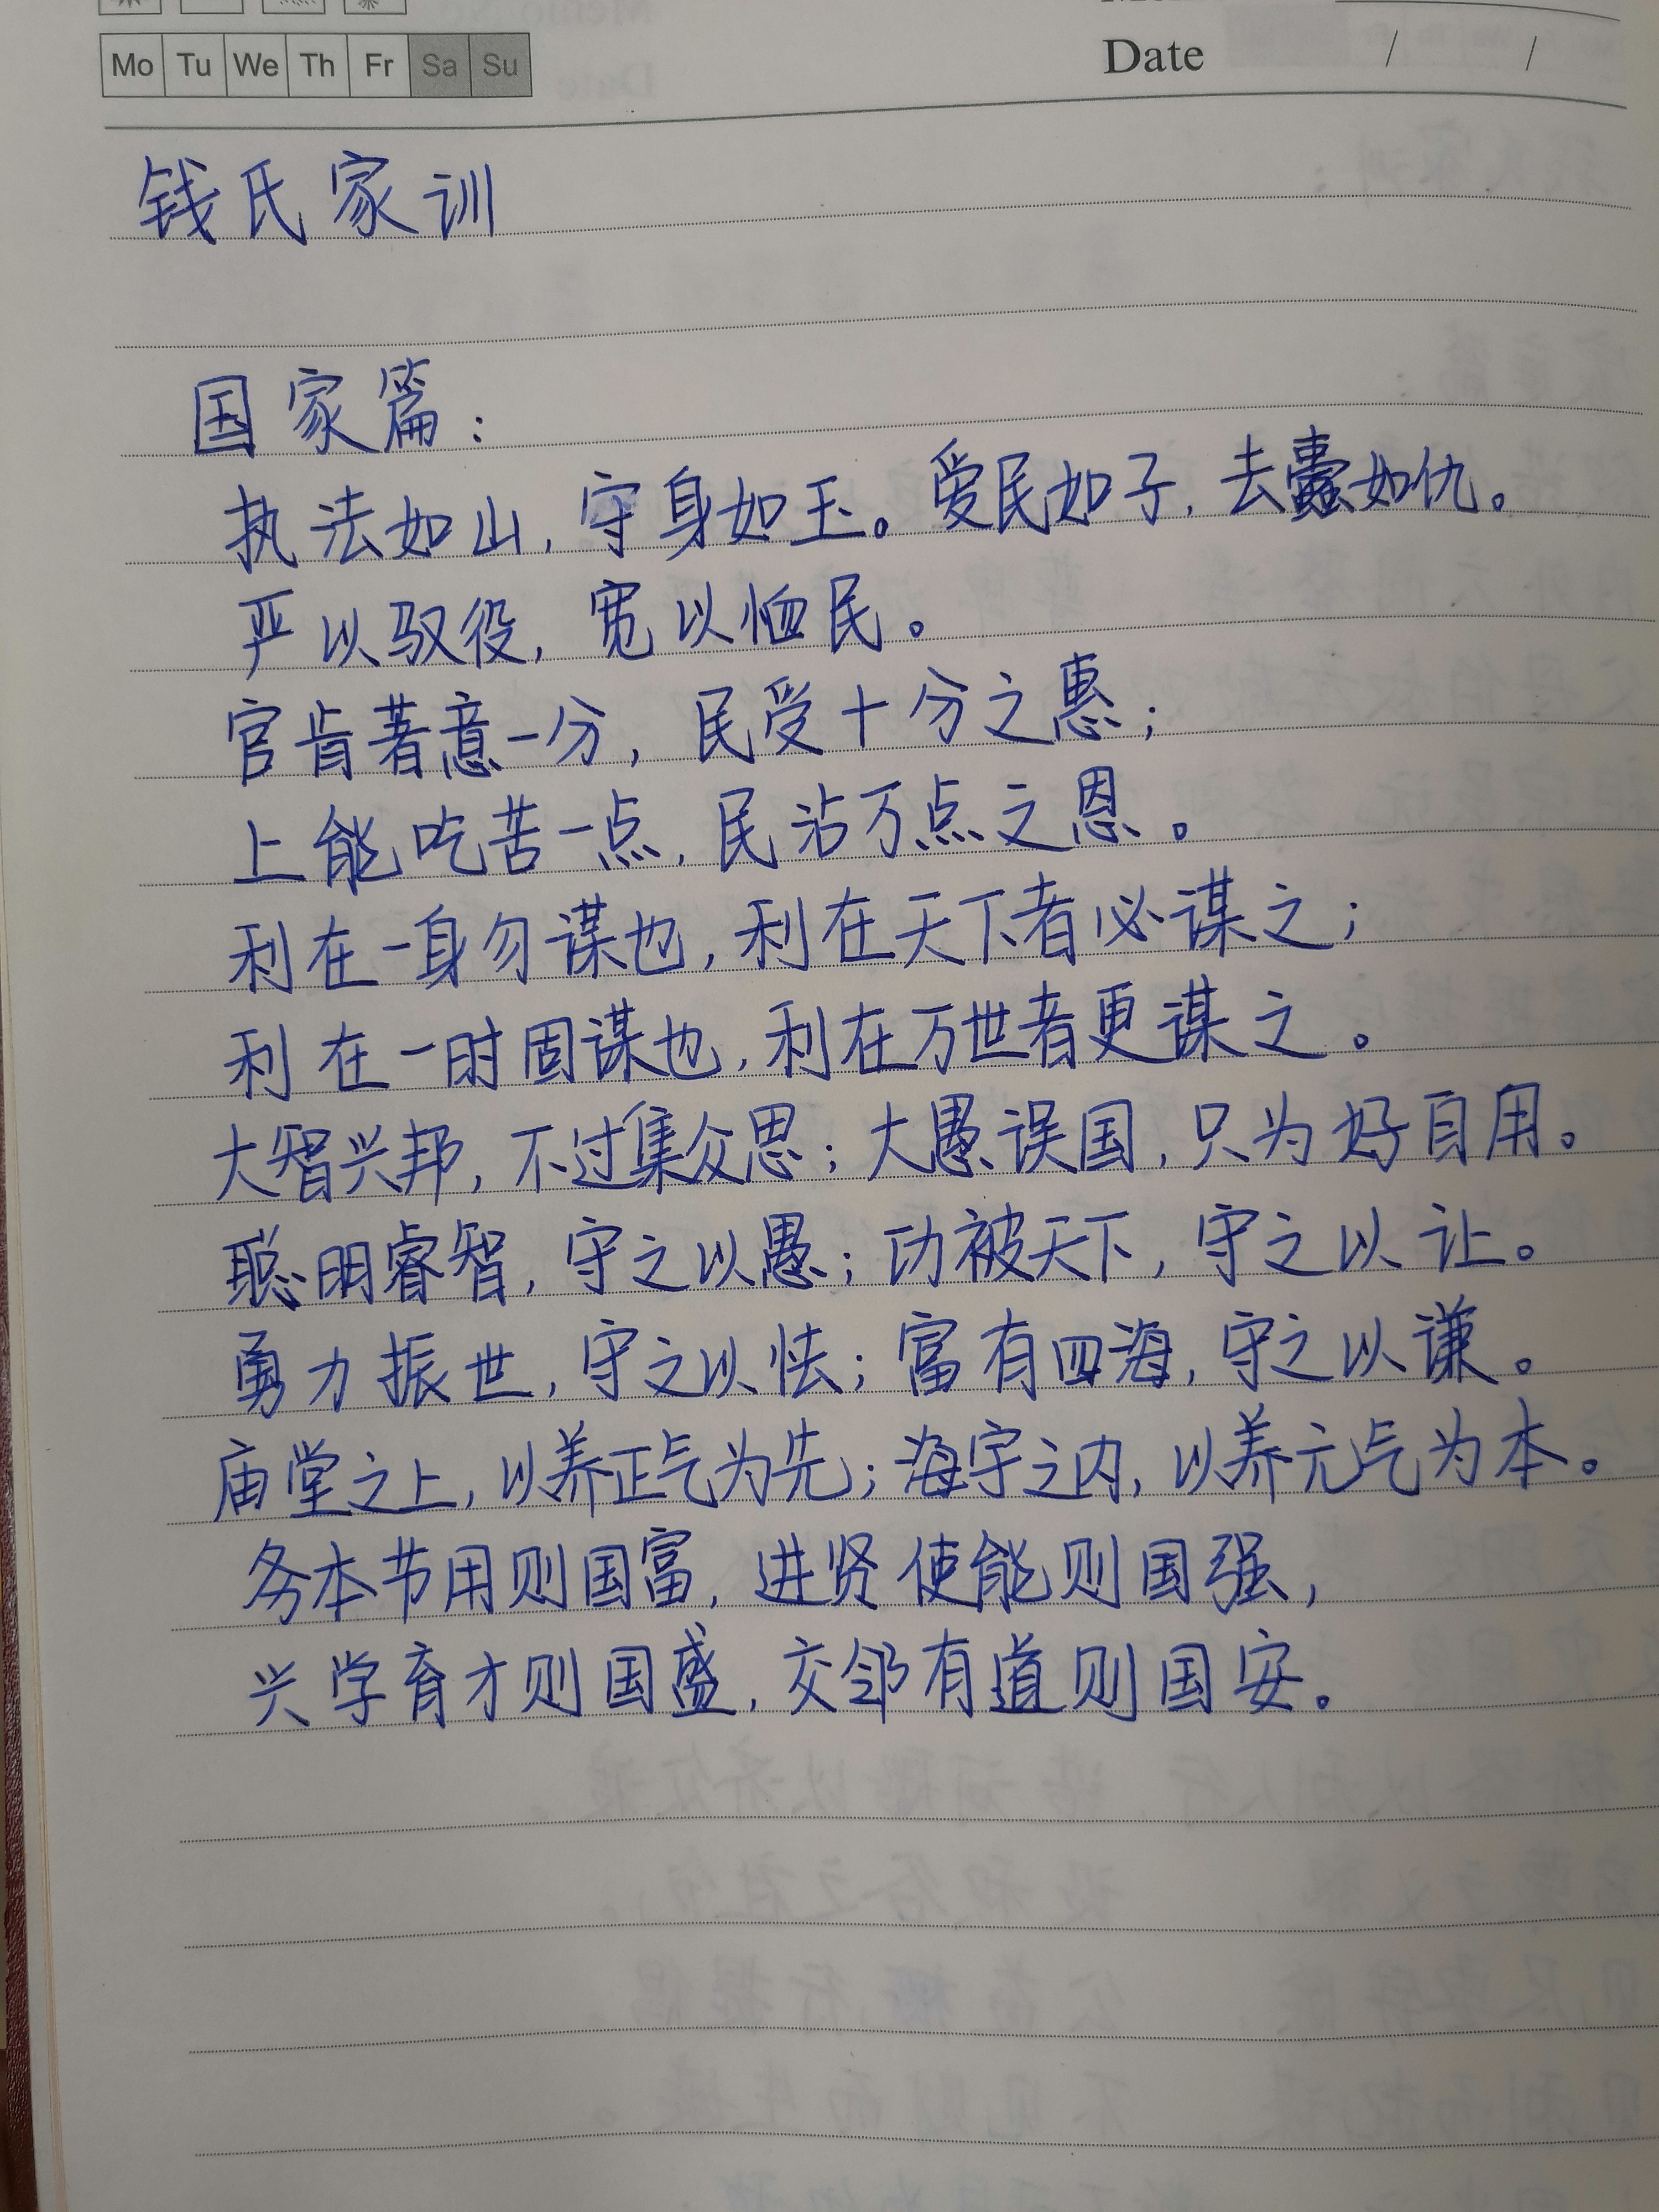 Mo Tu We Th Fr Sa Su
Date / /
钱氏家训
国家篇：
执法如山，守身如玉。爱民如子，去蠹如仇。
严以驭役，宽以恤民。
官肯著意一分，民受十分之惠；
上能吃苦一点，民沾万点之恩。
利在一身勿谋也，利在天下者必谋之；
利在一时固谋也，利在万世者更谋之。
大智兴邦，不过集众思；大愚误国，只为好自用。
聪明睿智，守之以愚；功被天下，守之以让。
勇力振世，守之以怯；富有四海，守之以谦。
庙堂之上，以养正气为先；海宇之内，以养元气为本。
务本节用则国富，进贤使能则国强，
兴学育才则国盛，交邻有道则国安。